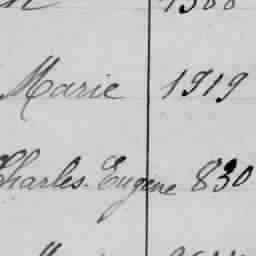 Marie 1919
Charles. Eugène 830